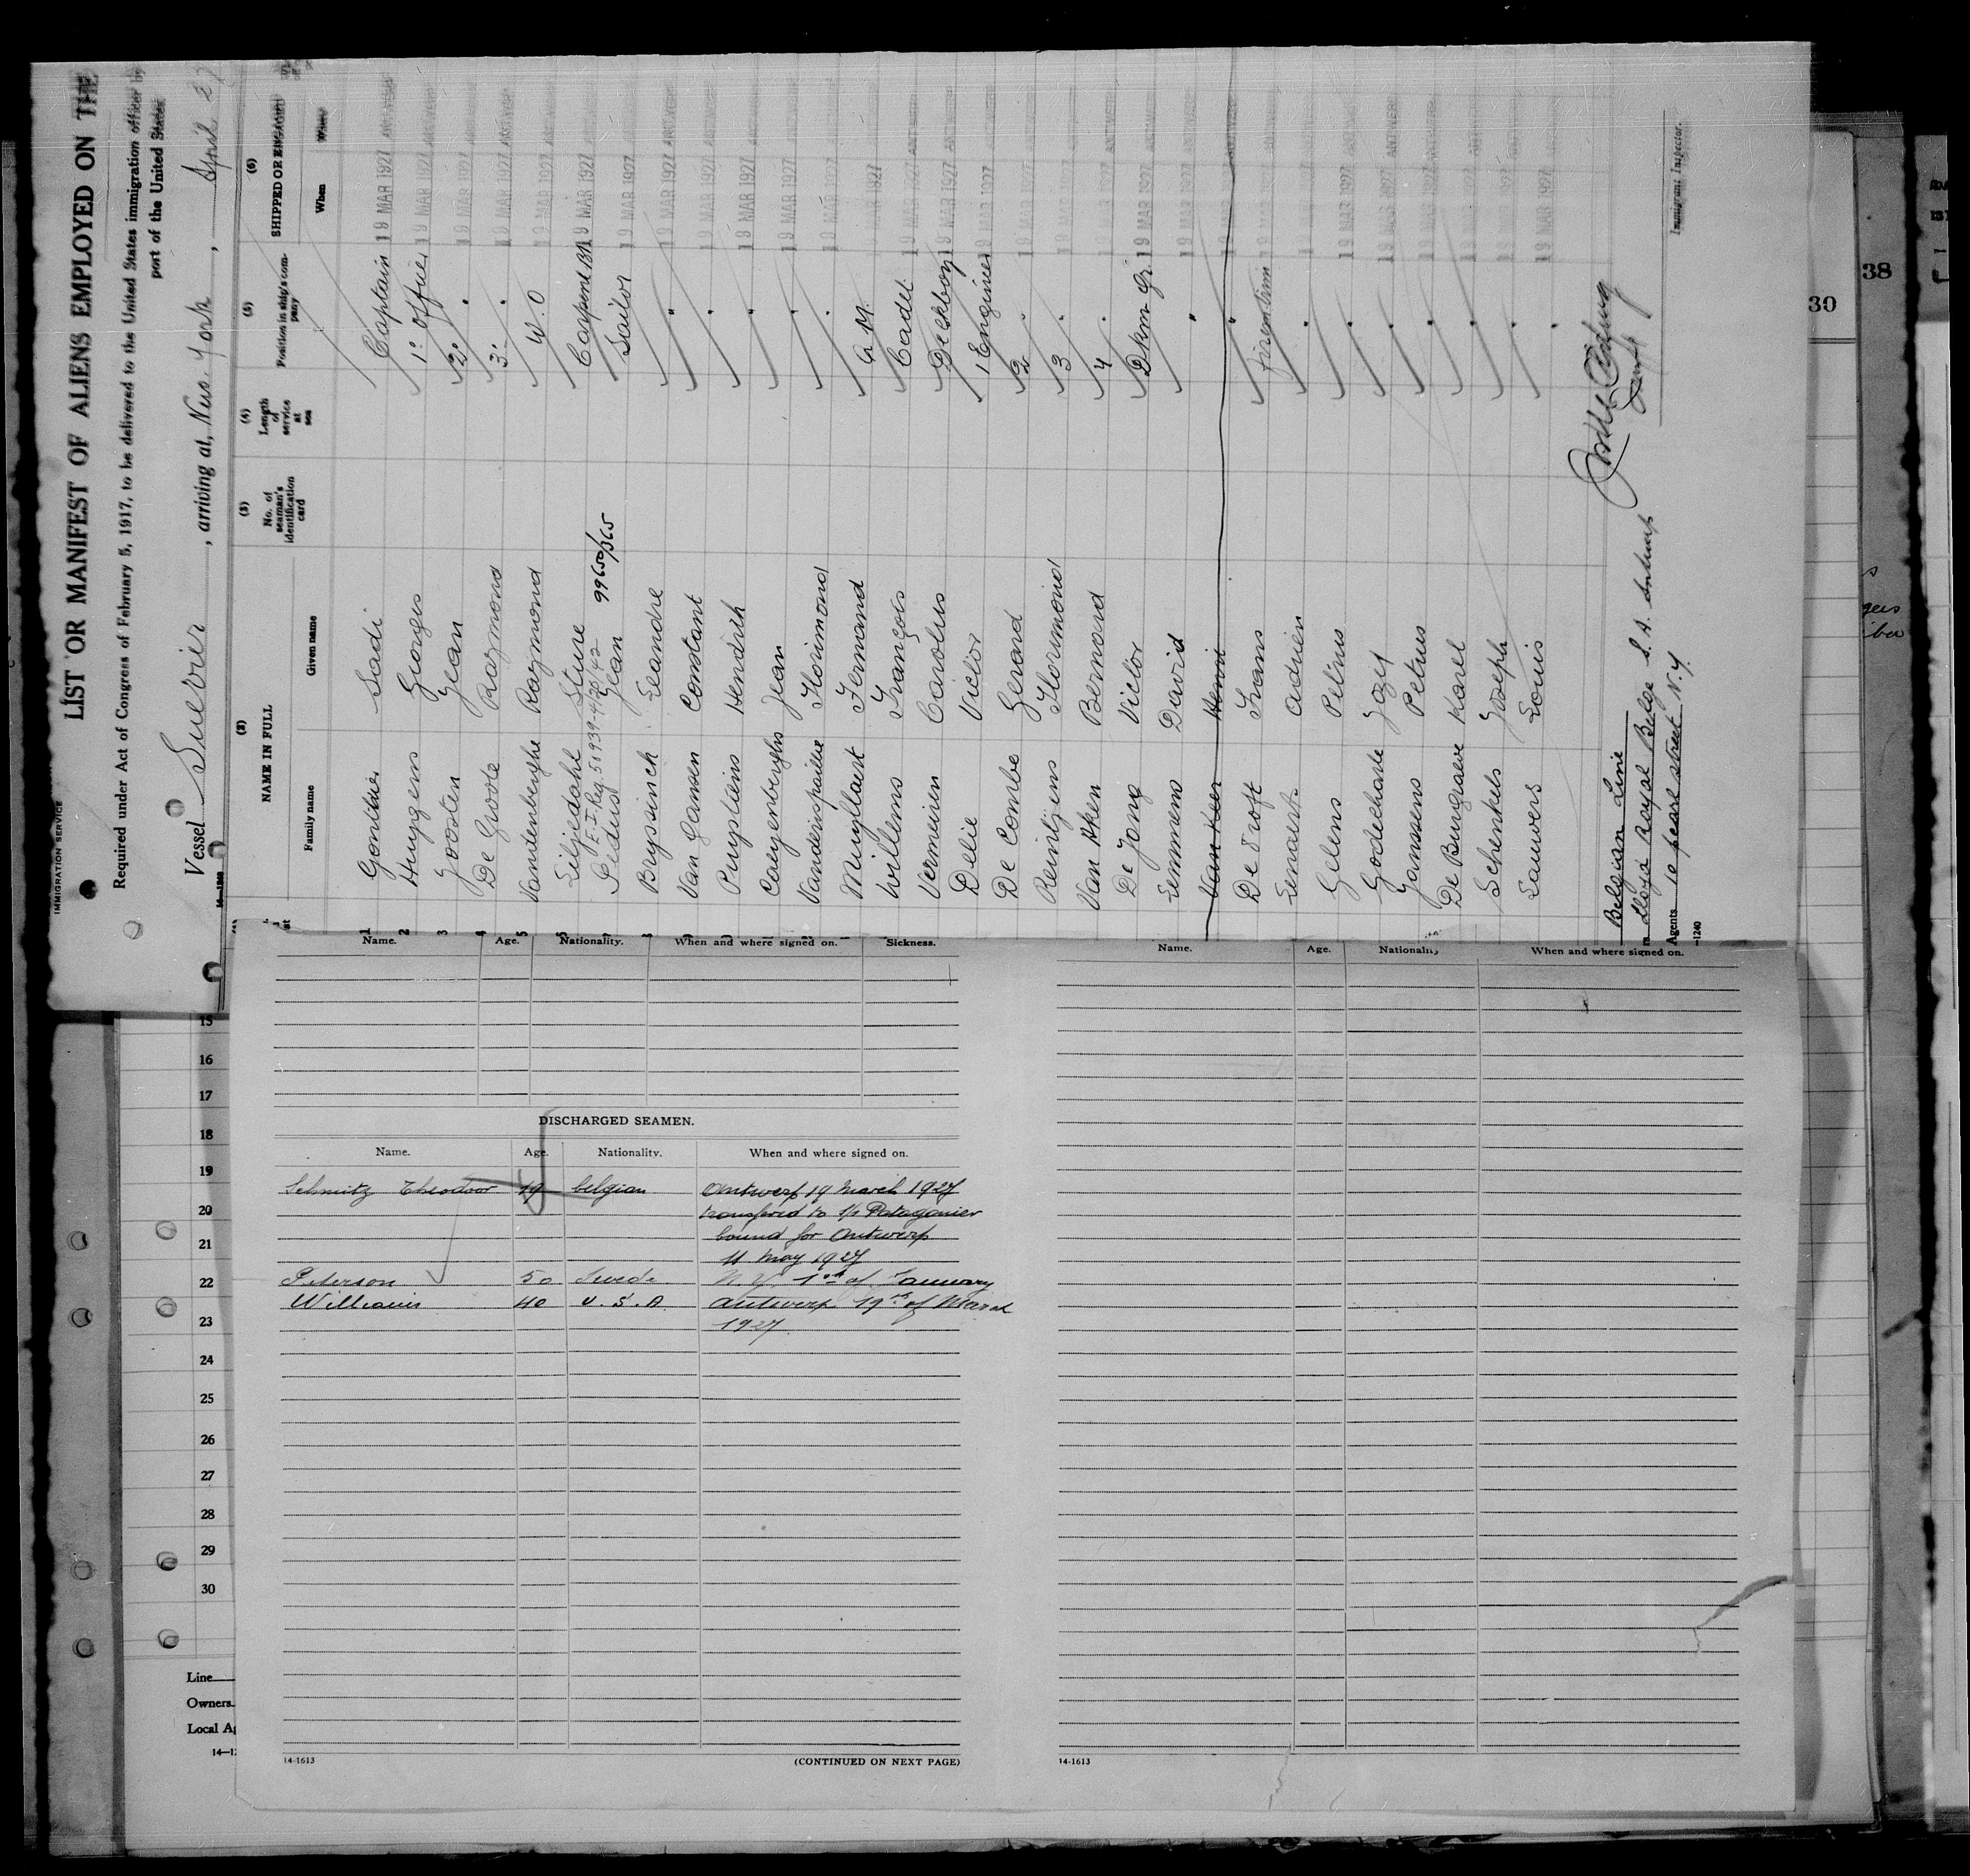 LIST OR MANIFEST OF ALIENS EMPLOYED ON THE
Required under Act of Congress of February 5, 1917, to be delivered to the United States immigration officer by
port of the United States
IMMIGRATION SERVICE
Vessel , arriving at, New York , April 27
(2) (3) (4) (5) (6)
NAME IN FULL No. of seaman's identification card Length of service at sea Position in ship's company SHIPPED OR ENGAGED
Family name Given name When Where
1 Gontier Sadi Captain 19 MAR 1927 ANTWERP
2 Huygens Georges 1° officer 19 MAR 1927 ANTWERP
3 Joosten Jean 2° " 19 MAR 1927 ANTWERP
4 De Groote Raymond 3° " 19 MAR 1927 ANTWERP
5 Vandenberghe Raymond W.O 19 MAR 1927 ANTWERP
Liljedahl Sture 19 MAR 1927 ANTWERP
99650/365
Jean Sailor 19 MAR 1927 ANTWERP
8 Bryssinck Leandre " 19 MAR 1927 ANTWERP
Van Gansen Constant " 19 MAR 1927 ANTWERP
Hendrik " 19 MAR 1927 ANTWERP
Jean " 19 MAR 1927
Florimond " 19 MAR 1927
Fernand 19 MAR 1927
Willems François Cadet 19 MAR 1927 ANTWERP
Vermeiren Carolus Deckboy 19 MAR 1927 ANTWERP
Delie Victor 1 Engineer 19 MAR 1927 ANTWERP
De Combe Gerard 2 " 19 MAR 1927 ANTWERP
Florimond 3 " 19 MAR 1927 ANTWERP
Van Aken Bernard 4 " 19 MAR 1927 ANTWERP
De Jong Victor 19 MAR 1927 ANTWERP
Lemmens David " 19 MAR 1927
Henri "
Frans 19 MAR 1927
Lenaerts Adrien " 19 MAR 1927
Gelens Petrus " 19 MAR 1927 ANTWERP
Jozef " 19 MAR 1927 ANTWERP
Janssens Petrus " 19 MAR 1927 ANTWERP
Karel " 19 MAR 1927
Joseph " 19 MAR 1927
Lauwers Louis " 19 MAR 1927
Belgian Line
Lloyd Royal Belge S.A. Antwerp
Agents 10 pearl street N.Y.
Immigrant Inspector.
Name. Age. Nationality. When and where signed on. Sickness.
DISCHARGED SEAMEN.
Name. Age. Nationality. When and where signed on.
Schmitz Theodoor 19 belgian Antwerp 19 March 1927
transfered to s/s Patagonier
bound for Antwerp
11 May 1927
Peterson 50 Swede N.Y. 1st of January
Williams 40 U.S.A Antwerp 19th of March
1927
14-1613 (CONTINUED ON NEXT PAGE)
Name. Age. Nationality When and where signed on.
14-1613
15
16
17
18
19
20
21
22
23
24
25
26
27
28
29
30
Line
Owners
Local Ag
38
30